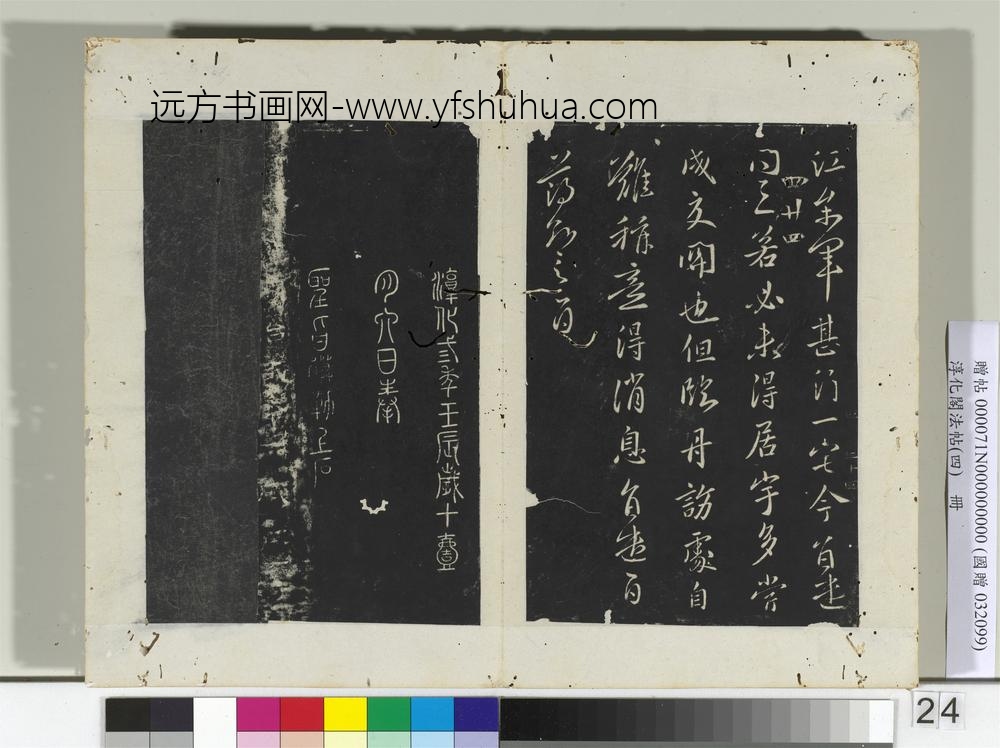 远方书画网-www.yfshuhua.com
江参军甚须一宅今有
四廿四
问之若必未得居宇多
成文开也但临丹访处自
难称意得消息自
淳化三年壬辰歲十壹
月六日奉
聖旨摹勒上石
贈帖 000071N000000000 (國贈 032099)
淳化閣法帖(四) 冊
24